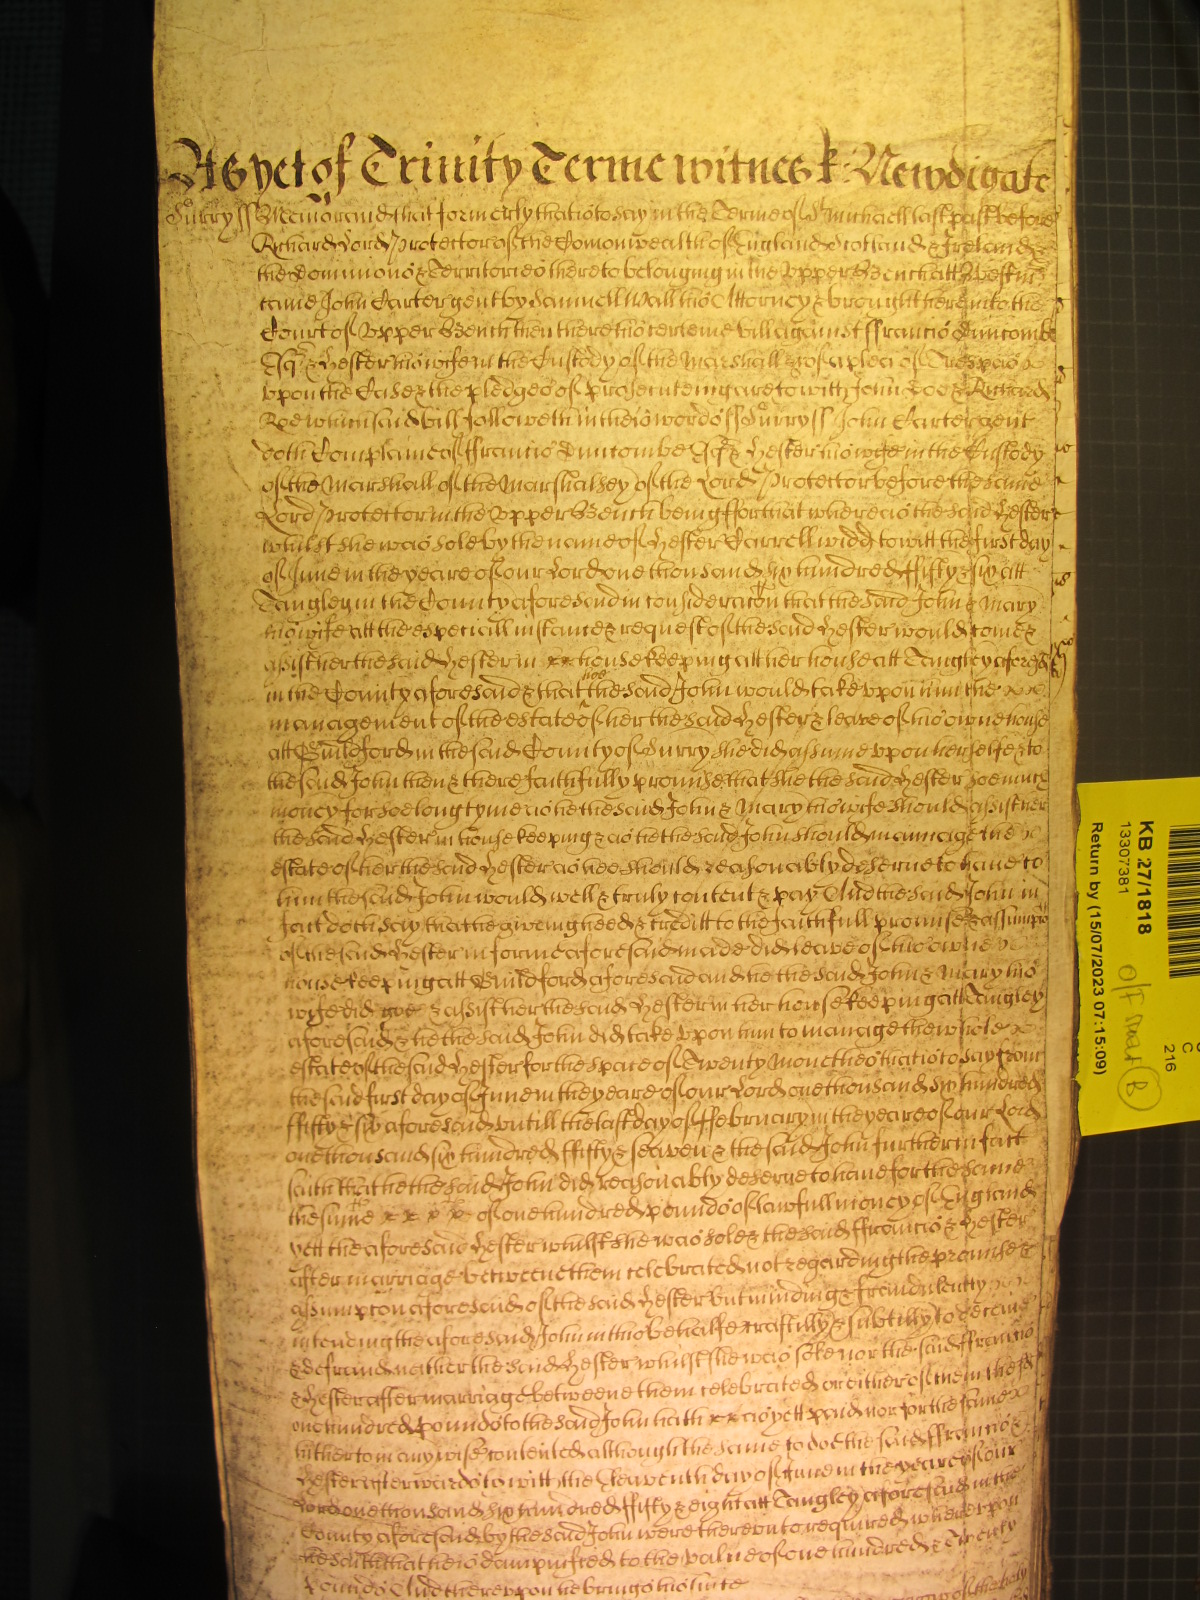 As yet of Trinity Terme witnes R: Newdigate
Surry ss Memorand that formerly that is to say in the Terme of St Michaell last past before
Richard Lord Protector of the Comonwealth of England Scotland & Ireland &
the Dominions & Territories thereto belonging in the Upper Bench att Westmr
came John Carter gent by Samuell Wall his Attorney & brought here into the
Court of Upper Bench then there his certeine Bill against ffrancis Duncombe
Esqr & Hester his wife in the Custody of the Marshall &c of a plea of Trespas
upon the Case & the pledges of prosecuteing are to with John Doo & Richard
Roe which said bill followeth in theis words ss Surry ss John Carter gent
doth Complaine of ffrancis Duncombe Esqr & Hester his wife in the Custody
of the Marshall of the Marshalsey of the Lord Protector before the same
Lord Protector in the Upper Bench being ffor that whereas the said Hester
whilst she was sole by the name of Hester Carrell widd to witt the first day
of June in the yeare of our Lord one thousand six hundred ffifty & six att
Tangley in the County aforesaid in consideracon that the said John & Mary
his wife att the especiall instance & request of the said Hester would come &
assist her the said Hester in house keeping att her house att Tangley aforesd
in the County aforesaid & that hee the said John would take upon him the
management of the estate of her the said Hester & leave of his owne house
att Guildford in the said County of Surry she did assume upon herselfe & to
the said John then & there faithfully promise that she the said Hester soe much
money for soe long tyme as he the said John & Mary his wife should assist her
the said Hester in house keeping & as he the said John should mannage the
estate of her the said Hester as hee should reasonably deserve to have to
him the said John would well & truly content & pay And the said John in
fact doth say that he giveing heed & creditt to the faithfull promise & assumpcon
of the said Hester in forme aforesaid made did leave of his owne
house keeping att Guildford aforesaid and he the said John & Mary his
wife did goe & assist her the said Hester in her house keeping att Tangley
aforesaid & he the said John did take upon him to manage the whole
estate of the said Hester for the space of Twenty monethes that is to say from
the said first day of June in the yeare of our Lord one thousand six hundred
ffifty & six aforesaid untill the last day of ffebruary in the yeare of our Lord
one thousand six hundred ffifty & seaven & the said John further in fact
saith that he the said John did reasonably deserve to have for the same
the sume of one hundred pounds of lawfull money of England
yett the aforesaid Hester whilst she was sole & the said ffrancis & Hester
after marriage betweene them celebrated not regarding the promise &
assumpcon aforesaid of the said Hester but minding & fraudulently
intending the aforesaid John in this behalfe craftilly & subtilly to deceive
& defraud nether the said Hester whilst she was sole nor the said ffrancis
& Hester after marriage betweene them celebrated or either of them the sd
one hundred pounds to the said John hath as yett paid nor for the same
hitherto in any wise contented although the same to doe the said ffrancis &
Hester afterwards to witt the Eleaventh day of June in the yeare of our
Lord one thousand six hundred ffifty & eight att Tangley aforesaid in the
County aforesaid by the said John were thereunto required whereupon
he saith that he is dampnifyed to the value of one hundred & Twenty
Pounds And thereupon he brings his suite
KB 27/1818
13307381
Return by (15/07/2023 07:15:09)
C
216